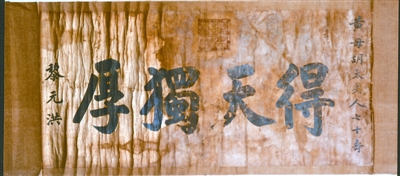 黃母胡太夫人七十壽
得天獨厚
黎元洪